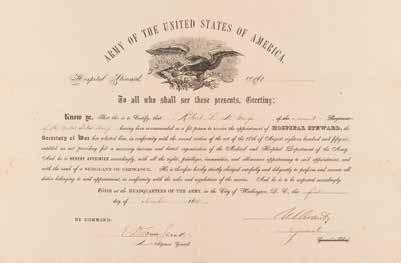 ARMY OF THE UNITED STATES OF AMERICA.
Hospital Steward,
To all who shall see these presents, Greeting:
Know ye, That this is to Certify, that Robert of the Regiment
having been recommended as a fit person to receive the appointment of HOSPITAL STEWARD, the
Secretary of War has selected him, in conformity with the second section of the act of the 16th of August eighteen hundred and fifty-six,
entitled an act providing for a necessary increase and better organization of the Medical and Hospital Department of the Army.
And he is HEREBY APPOINTED accordingly, with all the rights, privileges, immunities, and allowances appertaining to said appointment, and
with the rank of a SERGEANT OF ORDNANCE. He is therefore hereby strictly charged carefully and diligently to perform and execute all
duties belonging to said appointment, in conformity with the rules and regulations of the service. And he is to be respected accordingly.
GIVEN at the HEADQUARTERS OF THE ARMY, in the City of Washington, D. C., this first
day of
BY COMMAND:
E. D. Townsend
Adjutant General
U. S. Grant
General